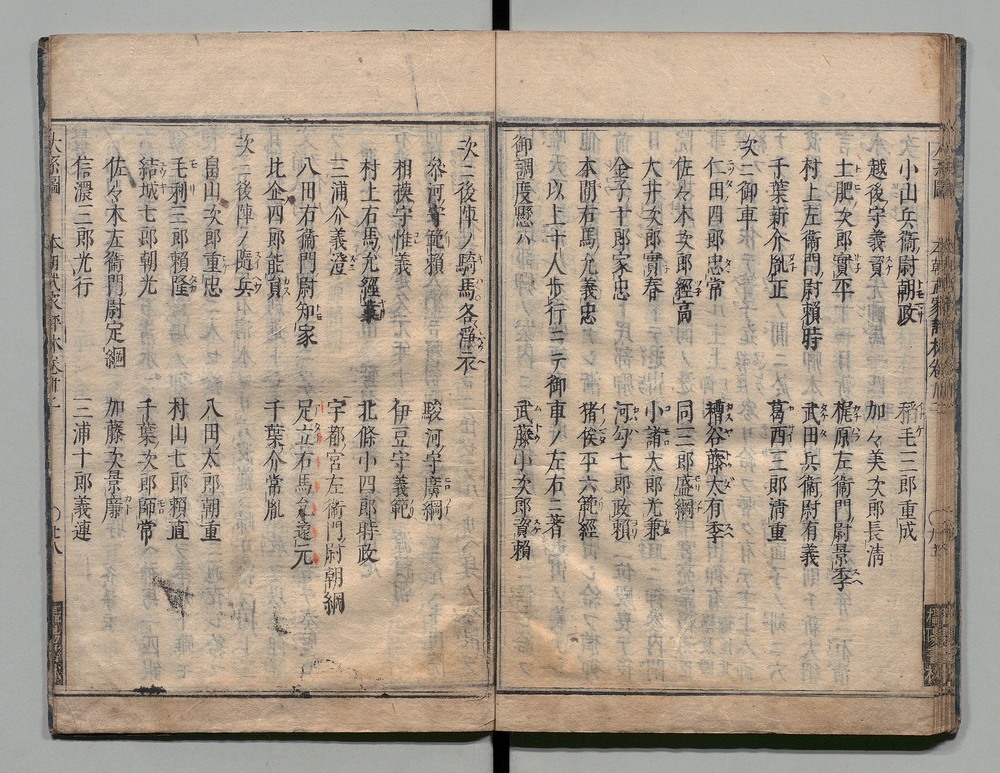 小山兵衛尉朝政 稻毛三郎重成
越後守義資 加々美次郎長清
土肥次郎實平 梶原左衛門尉景季
村上左衛門尉賴時 武田兵衛尉有義
千葉新介胤正 葛西三郎淸重
次ニ御車
仁田四郎忠常 糟谷藤太有季
佐々木次郎經高 同三郎盛綱
大井次郎實春 小諸太郎光兼
金子十郎家忠 河勾七郎政賴
本間右馬允義忠 猪俣平六範經
以上十人歩行ニテ御車ノ左右ニ著
御調度懸ハ 武藤小次郎資賴
次ニ後陣ノ騎馬各淨衣
參河守範賴 駿河守廣綱
相模守惟義 伊豆守義範
村上右馬允經業 北條小四郎時政
三浦介義澄 宇都宮左衛門尉朝綱
八田右衛門尉知家 足立右馬允遠元
比企四郎能員 千葉介常胤
次ニ後陣ノ隨兵
畠山次郎重忠 八田太郎朝重
毛利三郎賴隆 村山七郎賴直
結城七郎朝光 千葉次郎師常
佐々木左衛門尉定綱 加藤次景廉
信濃三郎光行 三浦十郎義連
大系圖 本朝武家評林卷廿一 〇廿八